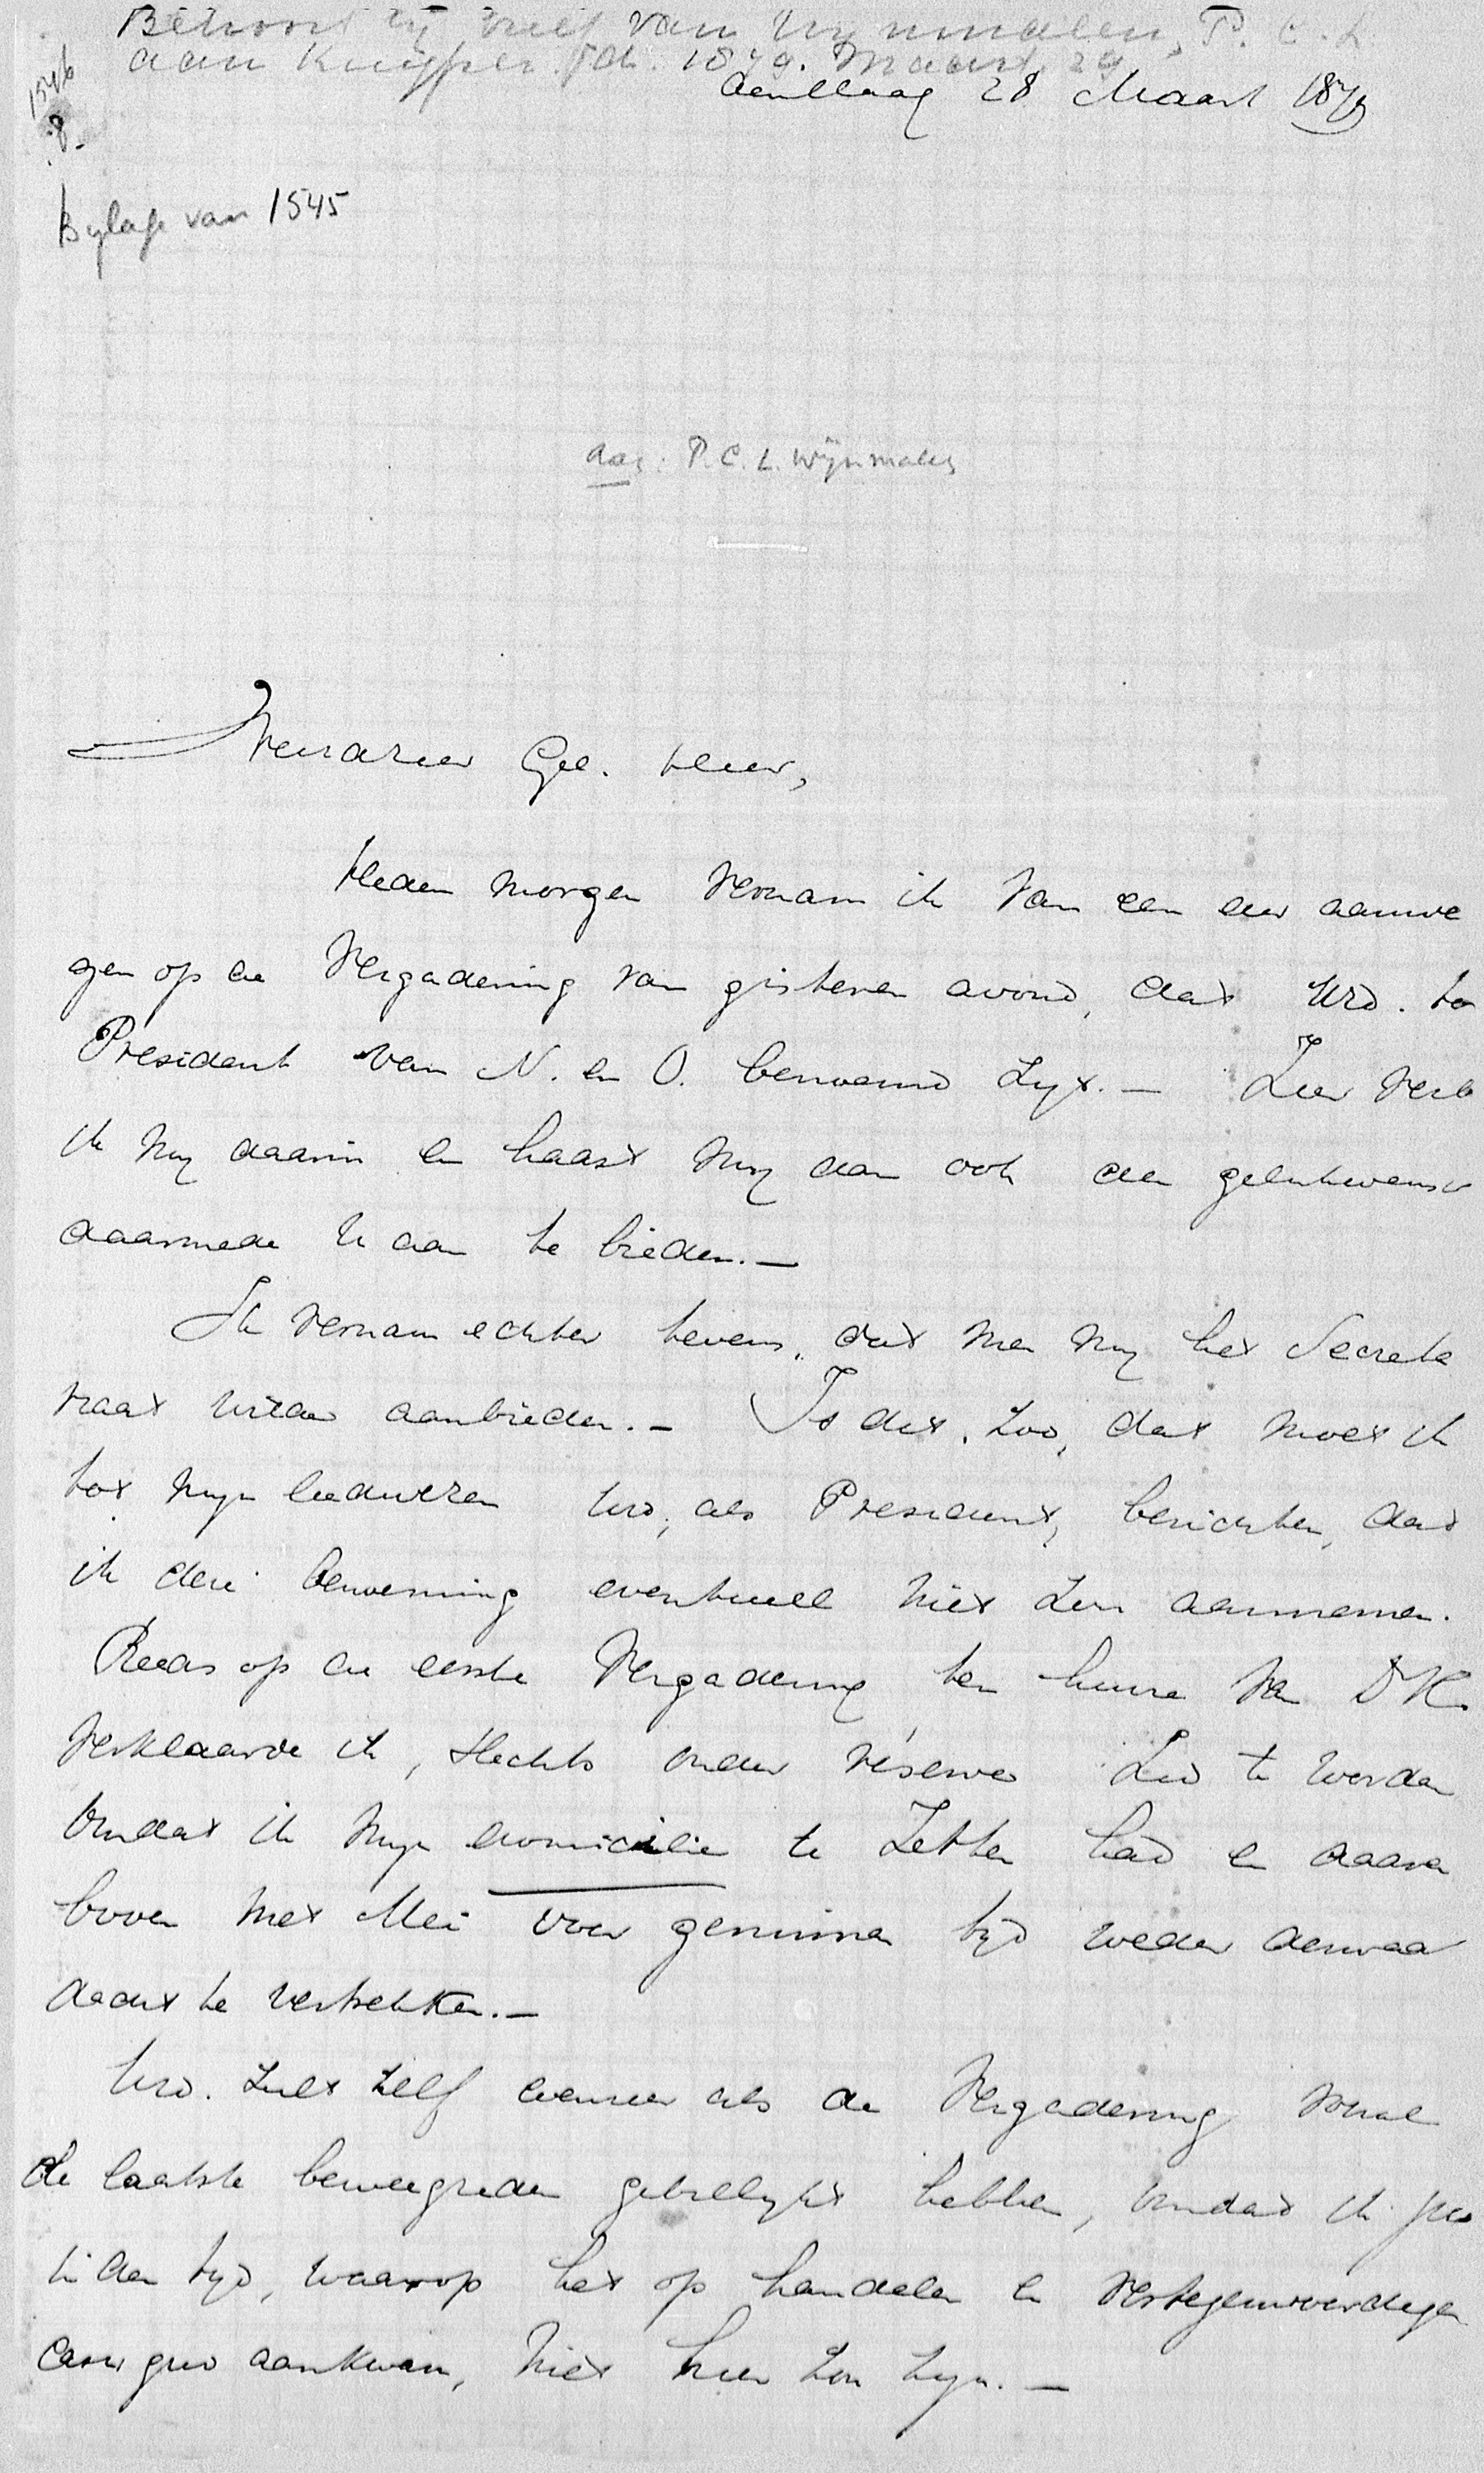 Behoort bij brief van Wijnmalen, P. C. L.
aan Kuyper. dd. 1879. Maart 29
den Haag 28 Maart 1879
1546
8.
Bylage van 1545
aan: P.C.L. Wijnmalen
Weledelzeer Gel. Heer,
Heden morgen vernam ik van een der aanwe
gen op de Vergadering van gisteren avond, dat UED. to
President van N. en O. benoemd zyt. — Zeer verb
ik my daarin en haast my dan ook den gelukwensch
daarmede U aan te bieden. —
Ik vernam echter tevens, dat men my het Secreta
riaat wilde aanbieden. — Is dit zoo, dan moet ik
tot myn leedwezen UED, als President, berichten, dat
ik die benoeming eventueel niet zou aannemen.
Reeds op de eerste Vergadering ten huize van Dr K.
verklaarde ik, slechts onder réserve Lid te worden
omdat ik myn domicilie te Zetten had en daaren
boven met Mei voor geruimen tyd weder derwaar
dacht te vertrekken. —
UED. zult zelf evenzeer als de Vergadering vooral
de laatste beweegreden gebillykt hebben, omdat ik juis
in den tyd, waarop het op handelen en vertegenwoordigen
aankwam, niet hier zou zyn. —